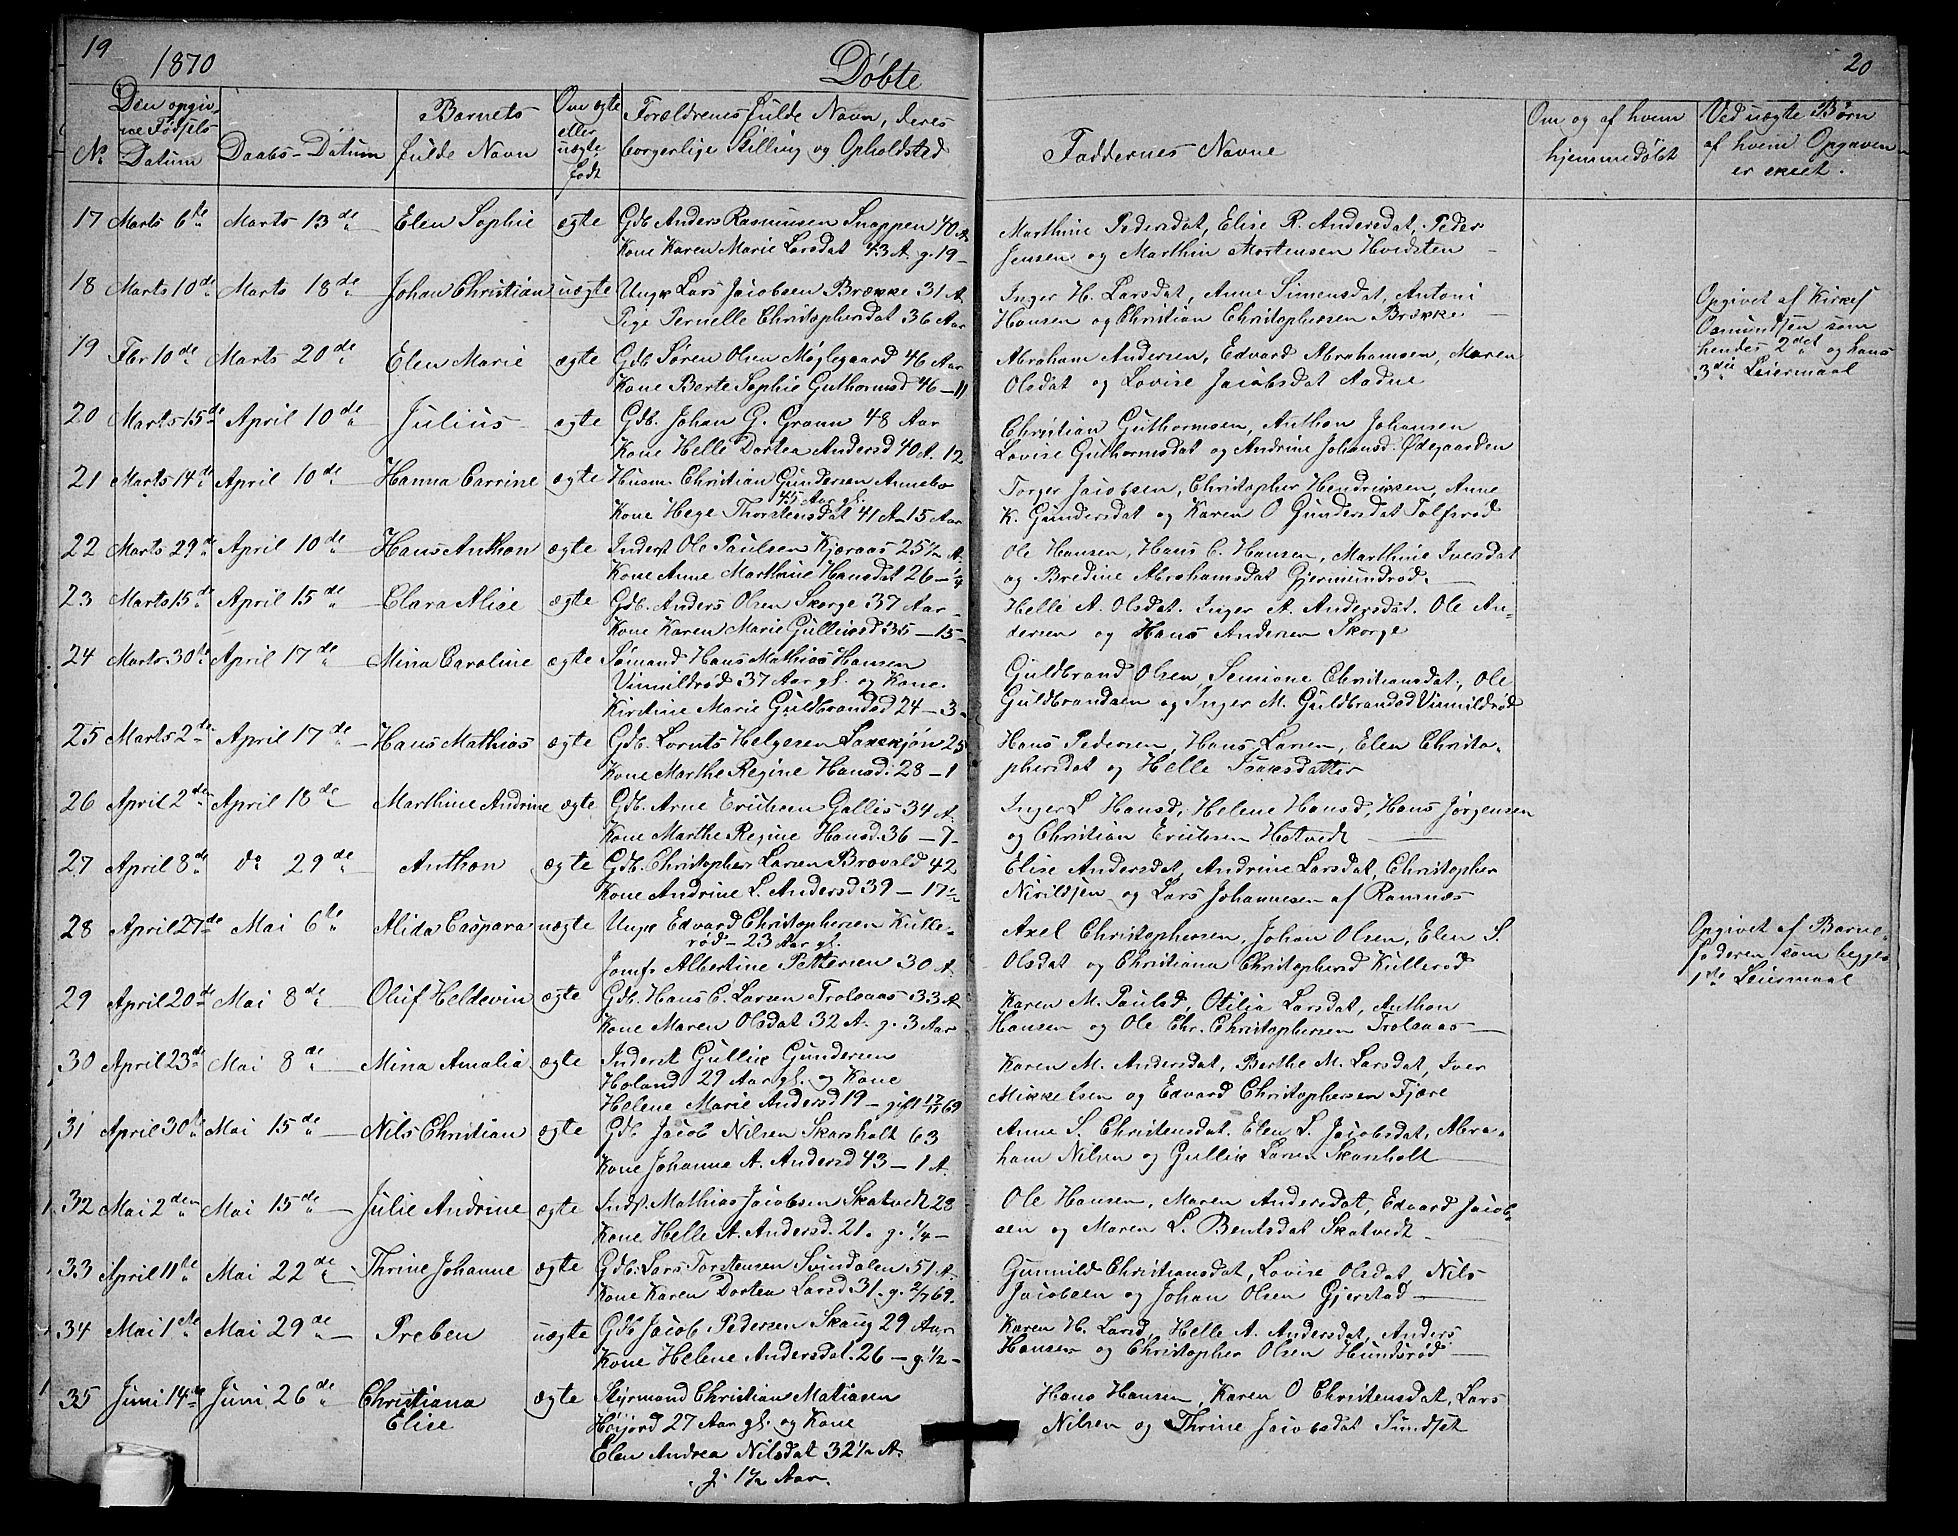 19
1870
Døbte
20
No
Den opgiv-
ne Fødsels
Datum
Daabs-Datum
Barnets
fulde Navn
Om ægte
eller
uægte
født
Forældrenes fulde Navn, deres
borgerlige Stilling og Opholdsted
Faddernes Navne
Om og af hvem
hjemmedøbt
Ved uægte Børn
af hvem Opgaven
er skeet.
17 Marts 6te Marts 13de Elen Sophie ægte Gdb Anders Rasmusen Snappen 40 A.
Kone Karen Marie Larsdat 43 A. g. 19 -
Marthine Pedersdat, Elise R. Andersdat, Peder
Jensen og Marthin Mortensen Hvidsten
18 Marts 10de Marts 18de Johan Christian uægte Ungk Lars Jacobsen Brække 31 A.
Pige Pernelle Christophersdat 36 Aar
Inger H. Larsdat, Anne Simensdat, Antoni
Hansen og Christian Christophersen Brække
Opgivet af Kirkes
Osmundsen som
hendes 2det og hans
3die Leiermaal
19 Fbr 10de Marts 20de Elen Marie ægte Gdb Søren Olsen Møglegaard 46 Aar
Kone Berte Sophie Guthormsd 46 - 11
Abraham Andersen, Edvard Abrahamsen, Maren
Olsdat og Lovise Jacobsdat Aadne
20 Marts 15de April 10de Julius ægte Gdb. Johan G. Grann 48 Aar
Kone Helle Dortea Andersd 40 A. 12
Christian Guthormsen, Anthon Johansen
Lovise Guthormsdat og Andrine Johansd. Ødegaarden
21 Marts 14de April 10de Hanna Carrine ægte Husm Christian Gundersen Annebo
45 Aar gl.
Kone Hege Thorstensdat 41 A - 15 Aar
Torger Jacobsen, Christopher Hendriksen, Anne
K. Gundersdat og Karen O Gundersdat Tolfsrød
22 Marts 29de April 10de Hans Anthon ægte Inderst Ole Paulsen Kjøraas 25 1/2 A.
Kone Anne Marthine Hansdat 26 - 1/4
Ole Hansen, Hans C. Hansen, Marthine Ivesdat
og Bredine Abrahamsdat Gjermundrød.
23 Marts 15de April 15de Clara Alise ægte Gdb. Anders Olsen Skorge 37 Aar -
Kone Karen Marie Gulliksd 35 - 15 -
Helle A. Olsdat. Inger A. Andersdat. Ole An-
dersen og Hans Andersen Skorge
24 Marts 30te April 17de Mina Caroline ægte Sømand Hans Mathias Hansen
Vimildrød 37 Aar gl. og Kone.
Kirstine Marie Guldbrandsd 24 - 3 -
Guldbrand Olsen, Semione Christiansdat, Ole
Guldbrandsen og Inger M. Guldbrandsd Vimildrød
25 Marts 2de April 17de Hans Mathias ægte Gdb. Lornts Helgesen Lakskjøn 25
Kone Marthe Regine Hansd. 28 - 1
Hans Pedersen, Hans Larsen, Elen Christo-
phersdat og Helle Isaksdatter
26 April 2den April 18de Marthine Andrine ægte Gdb. Arne Eriksen Gallis 34 A.
Kone Marthe Regine Hansd. 36 - 7 -
Inger L Hansd, Helene Hansd, Hans Jørgensen
og Christian Eriksen Hotvedt
27 April 8de do 29de Anthon ægte Gdb. Christopher Larsen Brovald 42
Kone Andrine L. Andersd 39 - 17 1/2
Elise Andersdat, Andrine Larsdat, Christopher
Nirildsen og Lars Johannesen af Ramnæs
28 April 27de Mai 6te Alida Caspara uægte Ungk Edvard Christophersen Kulle-
rød - 23 Aar gl.
Jomf. Albertine Pettersen 30 A.
Axel Christophersen, Johan Olsen, Elen S.
Olsdat og Christiana Christophersd Kullerød
Opgivet af Barne-
faderen som begges
1ste Leiermaal
29 April 20de Mai 8de Oluf Heldevin ægte Gdb. Hans C. Larsen Trolsaas 33 A
Kone Maren Olsdat 32 A. g. 3 Aar
Karen M. Paulsd, Otilia Larsdat, Anthon
Hansen og Ole Chr. Christophersen Trolsaas
30 April 23de Mai 8de Mina Amalia ægte Inderst Gullik Gundersen
Holand 29 Aar gl. og Kone
Helene Marie Andersd 19 - gift 17/11 69
Karen M. Andersdat, Berthe M. Larsdat, Iver
Mikkelsen og Edvard Christophersen Fjære
31 April 30te Mai 15de Nils Christian ægte Gdb Jacob Nilsen Skarsholt 63
Kone Johanna A. Andersd 43 - 1 A.
Anne S. Christensdat. Elen L. Jacobsdat, Abra-
ham Nilsen og Gullik Larsen Skarsholt
32 Mai 2den Mai 15de Julie Andrine ægte Inds. Mathias Jacobsen Skatvedt 28
Kone Helle A. Andersd. 21. g. 1/4 -
Ole Hansen, Maren Andersdat, Edvard Jacob-
sen og Maren L. Bentsdat Skatvedt
33 April 11te Mai 22de Thrine Johanne ægte Gdb. Lars Torstensen Svindalen 51 A.
Kone Karen Dortea Larsd 31. g. 2/7 69.
Gunnild Christiansdat, Lovise Olsdat, Nils
Jacobsen og Johan Olsen Gjerstad
34 Mai 1ste Mai 29de Preben uægte Gdb Jacob Pedersen Skaug 29 Aar
Kone Helene Andersdat. 26 - g. 1/2 -
Karen H. Larsd, Helle A. Andersdat, Anders
Hansen og Christopher Olsen Hundsrød
35 Juni 14de Juni 26de Christiana
Elise
ægte Styrmand Christian Matiasen
Høijord 27 Aar gl. og Kone
Elen Andrea Nilsdat 32 1/2 A.
g. 1 1/2 Aar.
Hans Hansen, Karen O Christensdat, Lars
Nilsen og Thrine Jacobsdat Sundset